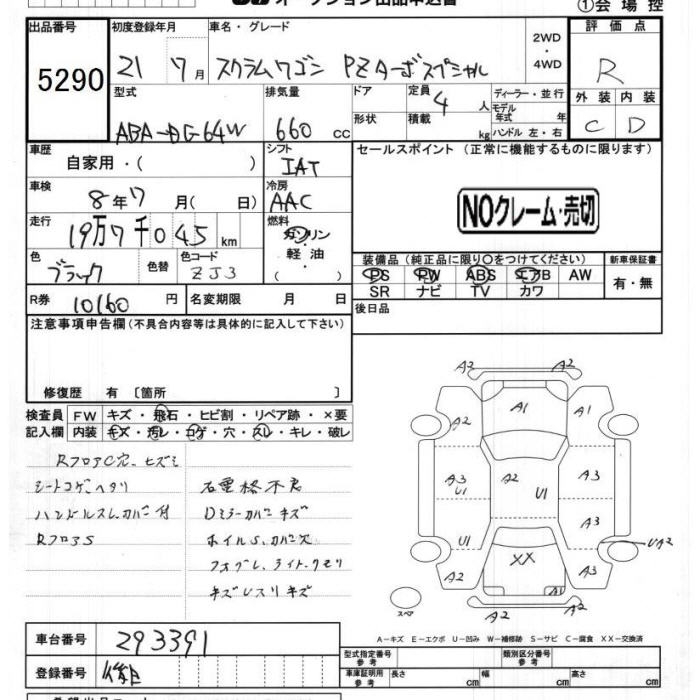 オークション出品申込書
①会場控
出品番号
5290
初度登録年月
21 7月
車名・グレード
スクラムワゴン PZターボスペシャル
2WD
・
4WD
評価点
R
型式
ABA-DG64W
排気量
660 cc
ドア
形状
定員
4 人
積載 kg
ディーラー・並行
モデル
年式 年
ハンドル 左・右
外装 内装
C D
車歴
自家用・( )
シフト
IAT
セールスポイント (正常に機能するものに限ります)
NOクレーム・売切
車検
8年7月( 日)
冷房
AAC
走行
19万7千045km
燃料
ガソリン
軽油・
( )
色
ブラック
色替
色コード
ZJ3
装備品 (純正品に限り○をつけてください)
PS PW ABS エアB AW
SR ナビ TV カワ
新車保証書
有・無
R券
10160円
名変期限 月 日
後日品
注意事項申告欄(不具合内容等は具体的に記入して下さい)
修復歴 有 〔箇所 〕
検査員 FW キズ・飛石・ヒビ割・リペア跡・×要
記入欄 内装 キズ・汚レ・コゲ・穴・スレ・キレ・破レ
RフロアC穴、ヒズミ
シートコゲ、ヘタリ
石電格不良
ハンドルスレ、カバー付
Dミラーカバーキズ
RフロアS
ホイルS、カバー欠
フォグレ、ライト、クモリ
キズレスリキズ
A2 A2
A2 A1 A1
A3 U1 A2 U1 A3
A3
U1 XX UA2
A2 A3
A2 A2
スペア
A-キズ E-エクボ U-凹み W-補修跡 S-サビ C-腐食 XX-交換済
車台番号
293391
登録番号
型式指定番号
参考
類別区分番号
参考
車庫証明用
参考
長さ cm 幅 cm 高さ cm